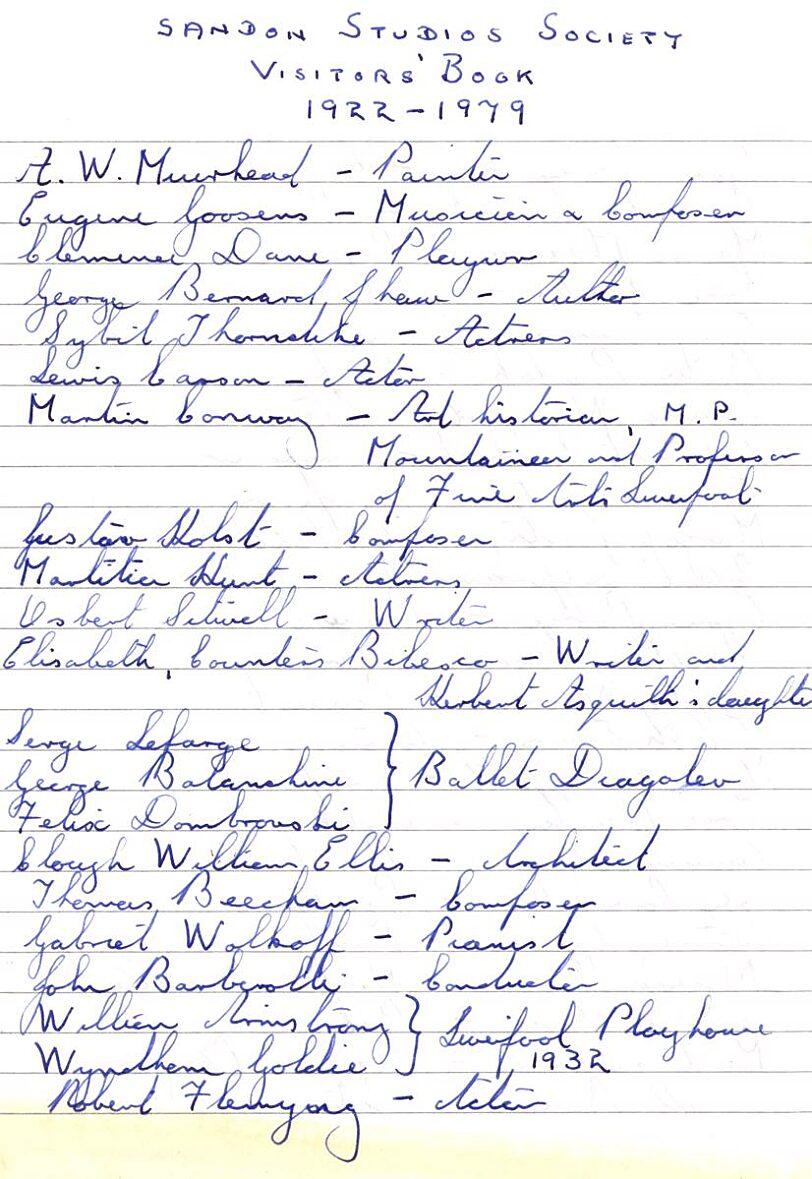 SANDON STUDIOS SOCIETY
VISITORS' BOOK
1922-1979
A. W. Muirhead - Painter
Eugene Goosens - Musician & Composer
Clemence Dane - Playwr
George Bernard Shaw - Author
Sybil Thorndike - Actress
Lewis Casson - Actor
Martin Conway - Art historian, M.P.
Mountaineer and Professor
of Fine Arts Liverpool
Gustav Holst - Composer
Martitia Hunt - Actress
Osbert Sitwell - Writer
Elisabeth, Countess Bibesco - Writer and
Herbert Asquith's daughter
Serge Lefarge
George Balanchine } Ballet Diagalev
Felix Dombrovski
Clough William Ellis - Architect
Thomas Beecham - Composer
Gabriel Wolkoff - Pianist
John Barberolli - Conductor
William Armstrong } Liverpool Playhouse
Wyndham Goldie 1932
Robert Flemyong - Actor